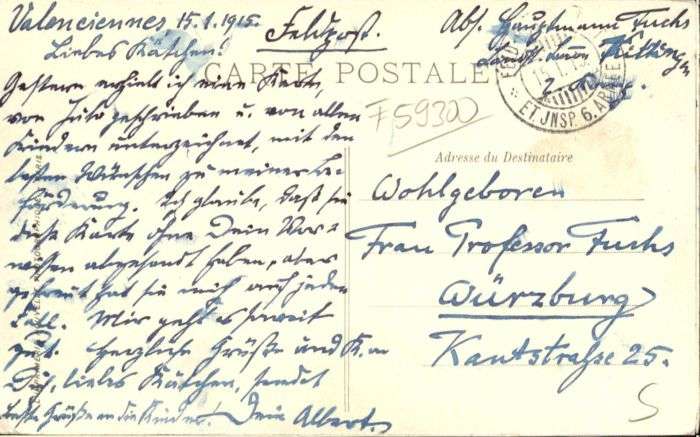 Valenciennes, 15.1.1915.
Feldpost.
Abs. Hauptmann Fuchs
Landst. Batl. Kitzingen
Liebes Kätchen!
CARTE POSTALE
Gestern erhielt ich eine Karte,
von Juto geschrieben u. von allen
Kindern unterzeichnet, mit den
besten Wünschen zu meiner Be-
förderung. Ich glaube, daß sie
diese Karte ohne Dein Vor-
wissen abgesandt haben, aber
gefreut hat sie mich auf jeden
Fall. Mir geht es soweit
gut. Herzliche Grüße und K.
Dir, liebes Kätchen, sendet
beste Grüße an die Kinder! Dein Albert.
F 59300
ET. JNSP. 6. ARMEE
Adresse du Destinataire
Wohlgeboren
Frau Professor Fuchs
Würzburg
Kantstraße 25.
5